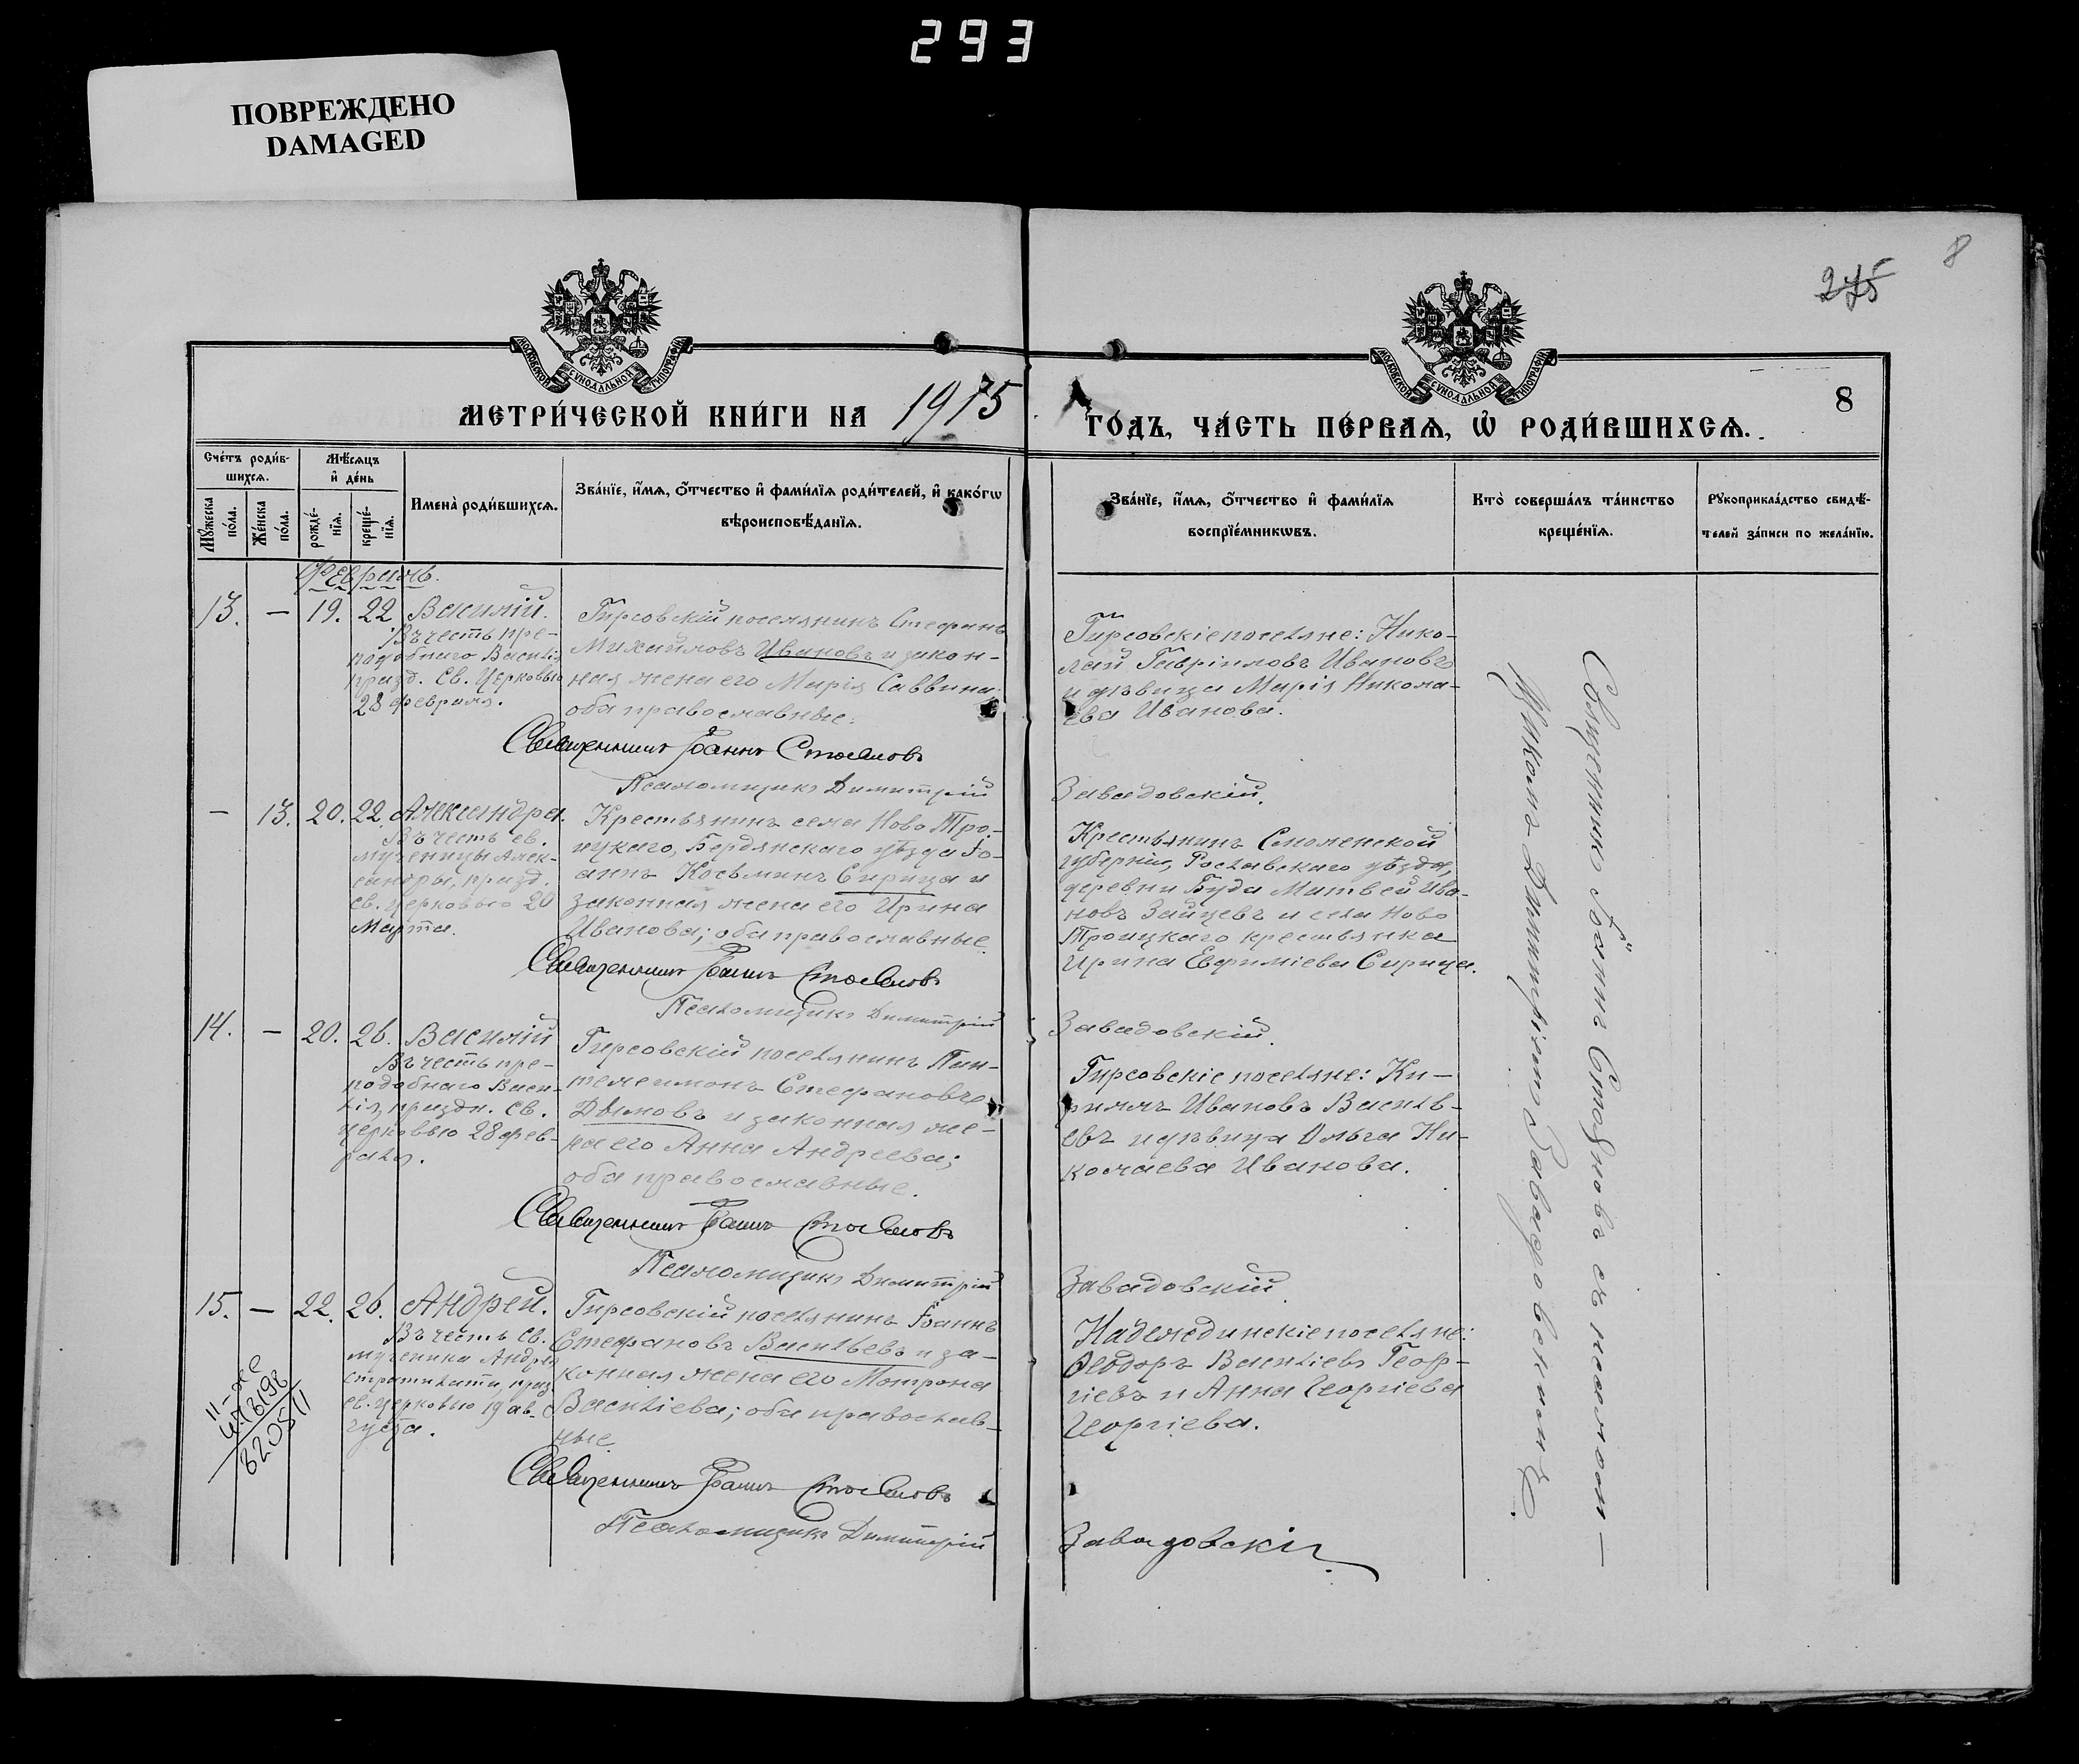 293
ПОВРЕЖДЕНО
DAMAGED
8
275
МОСКОВСКОЙ СѴНОДАЛЬНОЙ ТИПОГРАФІИ
МОСКОВСКОЙ СѴНОДАЛЬНОЙ ТИПОГРАФІИ
8
МЕТРИ́ЧЕСКОЙ КНИ́ГИ НА 1915 ГО́ДЪ, ЧА́СТЬ ПЕ́РВАѦ, Ѡ҆ РОДИ́ВШИХСѦ.
Сче́тъ роди́в-
шихсѧ.
Мѣ́сѧцъ
и҆ де́нь
Мꙋ́жеска
по́ла.
Же́нска
по́ла.
рожде́-
нїѧ.
креще́-
нїѧ.
Имена̀ роди́вшихсѧ.
Зва́нїе, и҆́мѧ, ѻ҆́тчество и҆ фами́лїѧ роди́телей, и҆ како́гѡ
вѣроисповѣ́данїѧ.
Зва́нїе, и҆́мѧ, ѻ҆́тчество и҆ фами́лїѧ
воспрїе́мникѡвъ.
Кто̀ соверша́лъ та́инство
креще́нїѧ.
Рꙋкоприкла́дство свидѣ́-
телей за́писи по жела́нїю.
Февраль.
13. — 19. 22 Василій.
Въ честь пре-
подобнаго Василія
празд. Св. Церковью
28 февраля.
Гирсовскій поселянинъ Стефанъ
Михайловъ Ивановъ и закон-
ная жена его Марія Саввина;
оба православные.
Священникъ Іоаннъ Стояновъ
Псаломщикъ Димитрій
Гирсовскіе поселяне: Нико-
лай Гавріиловъ Ивановъ
и дѣвица Марія Никола-
ева Иванова.
Завадовскій.
— 13. 20. 22 Александра.
Въ честь св.
мученицы Алек-
сандры, празд.
св. церковью 20
Марта.
Крестьянинъ села Ново Тро-
ицкаго, Бердянскаго уѣзда Іо-
аннъ Косьминъ Сирица и
законная жена его Ирина
Иванова; оба православные.
Священникъ Іоаннъ Стояновъ
Псаломщикъ Димитрій
Крестьянинъ Смоленской
губерніи, Рославскаго уѣзда,
деревни Буда Матвей Ива-
новъ Зайцевъ и села Ново
Троицкаго крестьянка
Ирина Ефиміева Сирица.
Завадовскій.
14. — 20. 26. Василій
Въ честь пре-
подобнаго Васи-
лія, праздн. св.
церковью 28 фев-
раля.
Гирсовскій поселянинъ Пан-
телеимонъ Стефановъ
Дымовъ и законная же-
на его Анна Андреева;
оба православные.
Священникъ Іоаннъ Стояновъ
Псаломщикъ Димитрій
Гирсовскіе поселяне: Ки-
риллъ Ивановъ Василь-
евъ и дѣвица Ольга Ни-
колаева Иванова.
Завадовскій.
15. — 22. 26. Андрей.
Въ честь св.
мученика Андрея
стратилата, празд.
св. церковью 19 ав-
густа.
Гирсовскій поселянинъ Іоаннъ
Стефановъ Васильевъ и за-
конная жена его Матрона
Василіева; оба православ-
ные.
Священникъ Іоаннъ Стояновъ
Псаломщикъ Димитрій
Надеждинскіе поселяне:
Ѳеодоръ Василіевъ Геор-
гіевъ и Анна Георгіева
Георгіева.
Завадовскій
Священникъ Іоаннъ Стояновъ съ псалом-
щикомъ Димитріемъ Завадовскимъ.
II-ЖС
820511